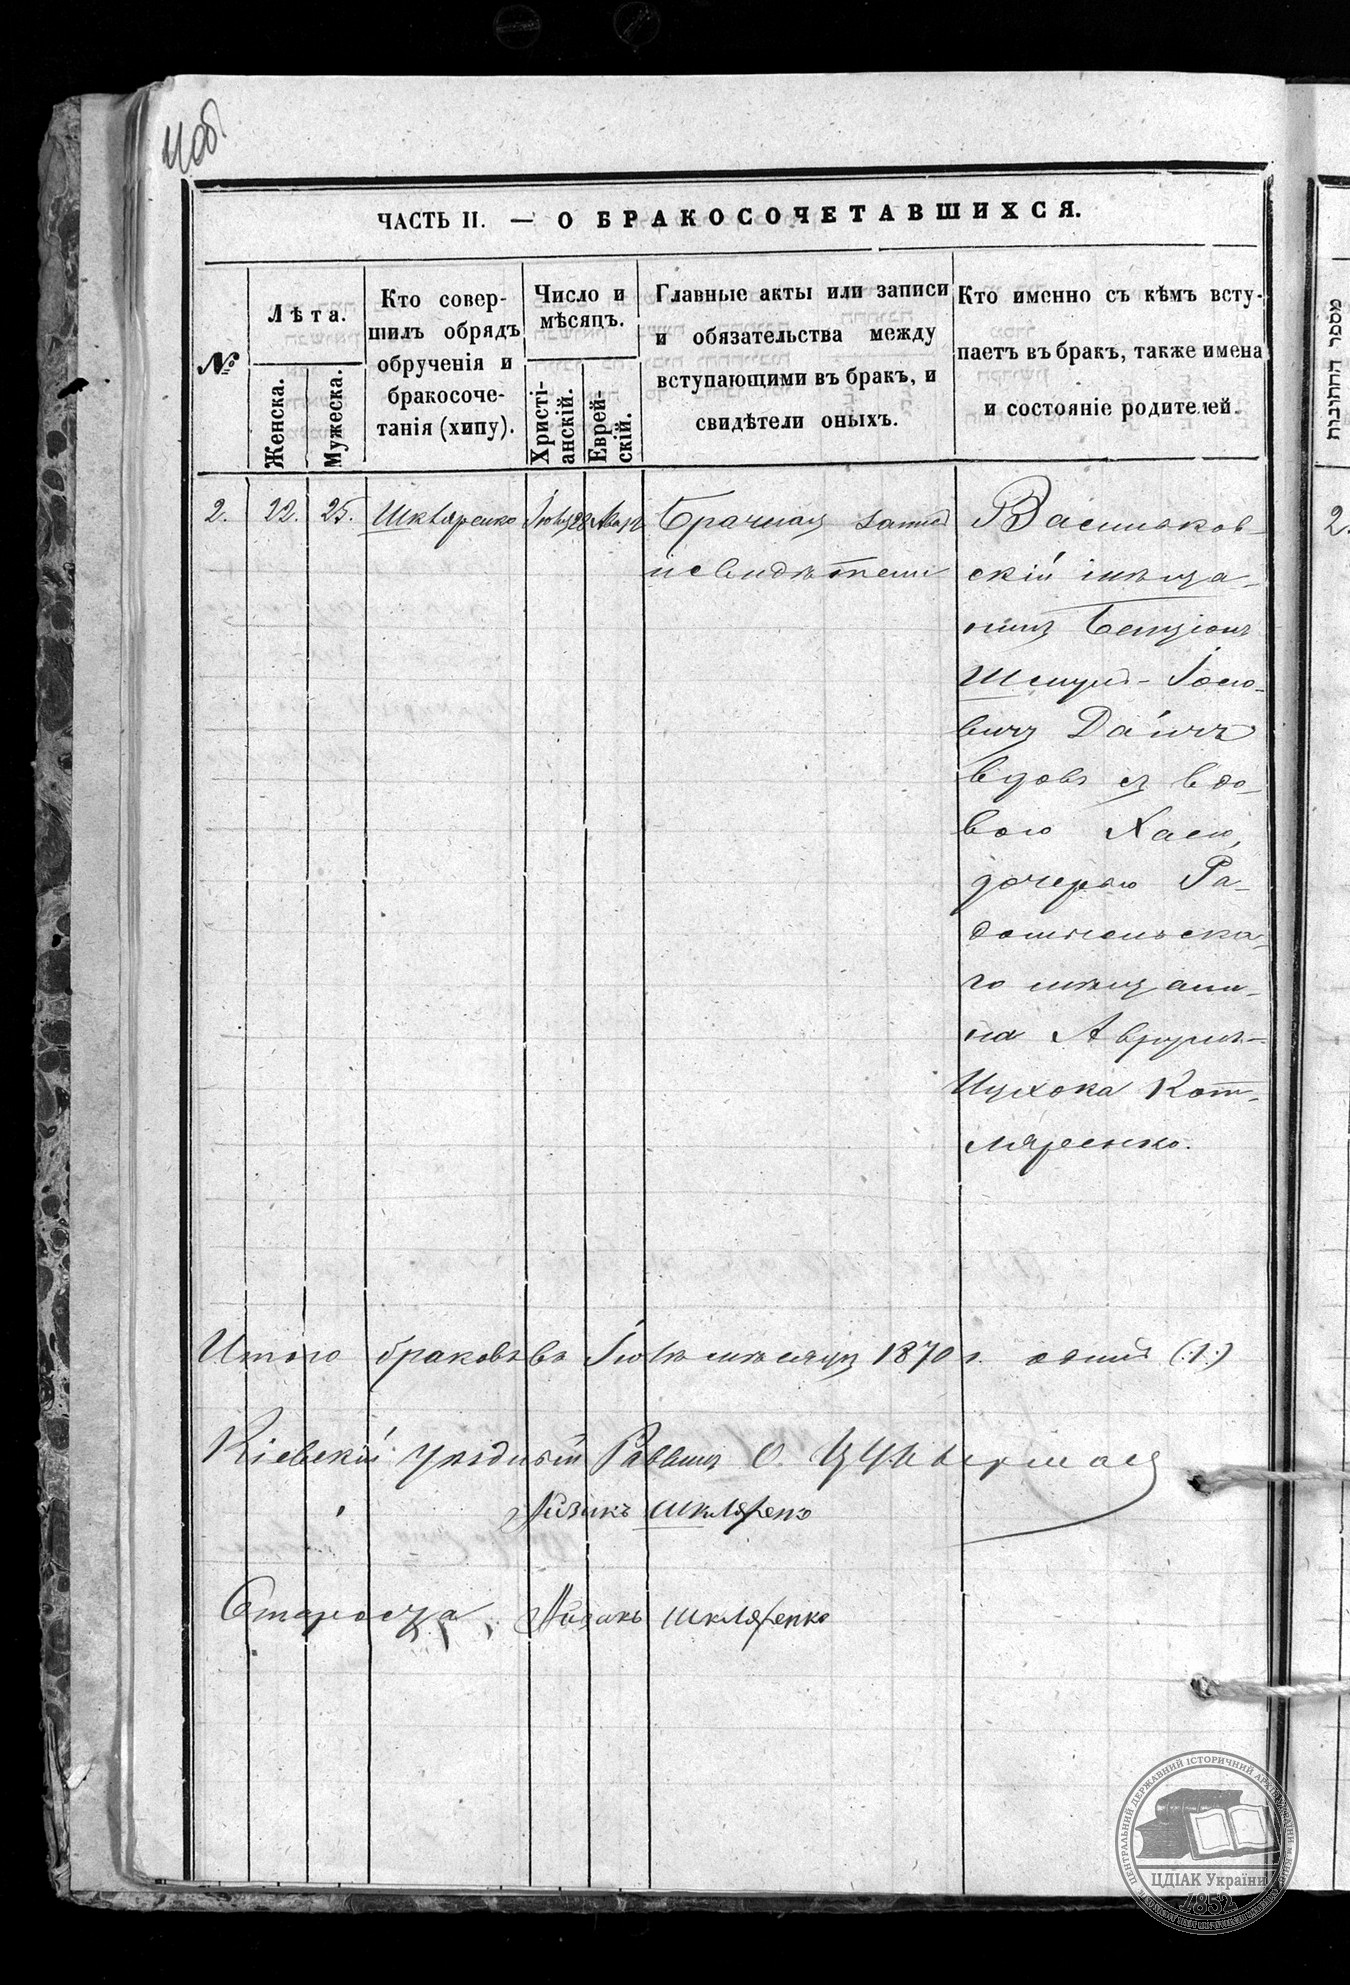 4об.
ЧАСТЬ II. — О БРАКОСОЧЕТАВШИХСЯ.
№
Лѣта.
Женска.
Мужеска.
Кто совер-
шилъ обрядъ
обрученія и
бракосоче-
танія (хипу).
Число и
мѣсяцъ.
Христі-
анскій.
Еврей-
скій.
Главные акты или записи
и обязательства между
вступающими въ бракъ, и
свидѣтели оныхъ.
Кто именно съ кѣмъ всту-
паетъ въ бракъ, также имена
и состояніе родителей.
2.
22.
25.
Шкляренко
Брачная запись
и свидѣтели
Васильков-
скій мѣща-
нинъ Бенціонъ
Шмуль-Іосіо-
вичъ
вдовъ съ вдо-
вою Хаею,
дочерью Ра-
домысльска-
го мѣщани-
на Аврумъ-
Ицхока Кот-
ляренко.
Итого браковъ въ Іюлѣ мѣсяцѣ 1870 г. одинъ (:1:)
Кіевскій Уѣздный Раввинъ О. Цукерман
Айзикъ Шкляренко
Староста: Айзикъ Шкляренко
מספר החתונות
2.
ЦЕНТРАЛЬНИЙ ДЕРЖАВНИЙ ІСТОРИЧНИЙ АРХІВ УКРАЇНИ М. КИЇВ
ЦДІАК України
1852